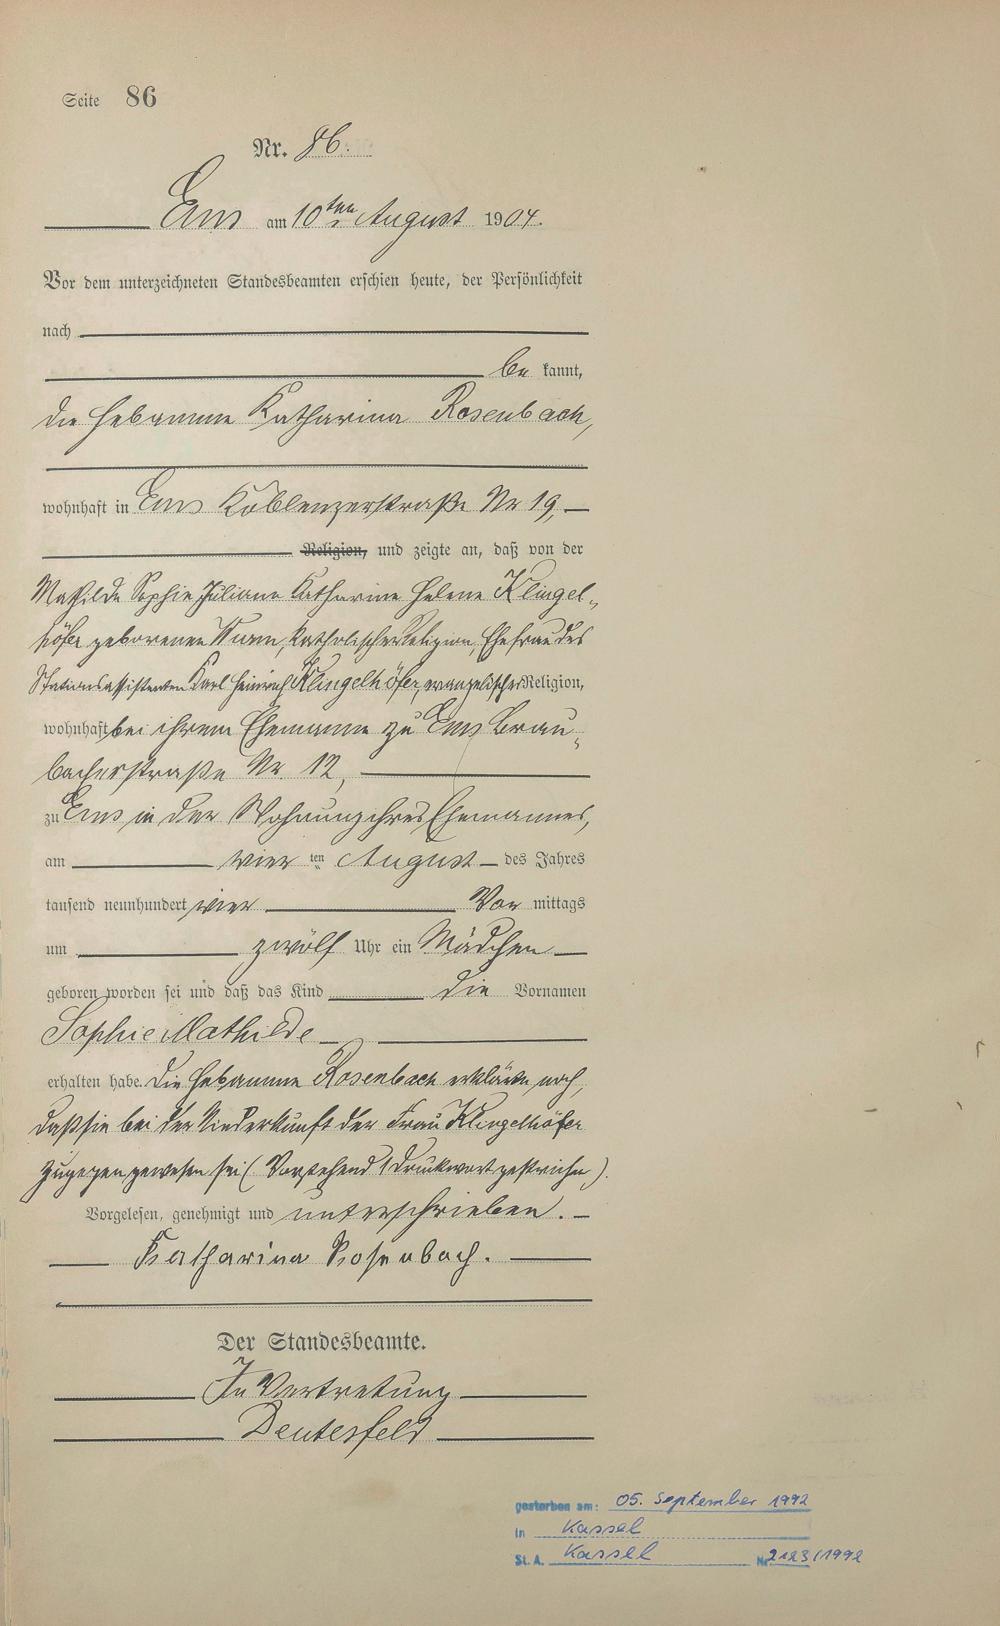 Seite 86
Nr. 86.
Ems am 10ten August 1904.
Vor dem unterzeichneten Standesbeamten erschien heute, der Persönlichkeit
nach
be kannt,
die Hebamme Katharina Rosenbach,
wohnhaft in Ems Koblenzerstraße Nr 19,
Religion, und zeigte an, daß von der
Mathilde Sophie Juliane Katharine Helene Klingel-
höfer geborenen, katholischer Religion, Ehefrau des
Stationsassistenten Karl Heinrich Klingelhöfer, evangelischer Religion,
wohnhaft bei ihrem Ehemanne zu Ems Brau-
bacherstraße Nr. 12,
zu Ems in der Wohnung ihres Ehemannes,
am vier ten August des Jahres
tausend neunhundert vier Vor mittags
um zwölf Uhr ein Mädchen
geboren worden sei und daß das Kind die Vornamen
Sophie Mathilde
erhalten habe. Die Hebamme Rosenbach erklärte noch,
daß sie bei der Niederkunft der Frau Klingelhöfer
zugegen gewesen sei (Vorstehend 1 Druckwort gestrichen).
Vorgelesen, genehmigt und unterschrieben.
Katharina Rosenbach.
Der Standesbeamte.
In Vertretung
Deutesfeld
gestorben am: 05. September 1992
in Kassel
St. A. Kassel Nr. 2123/1992